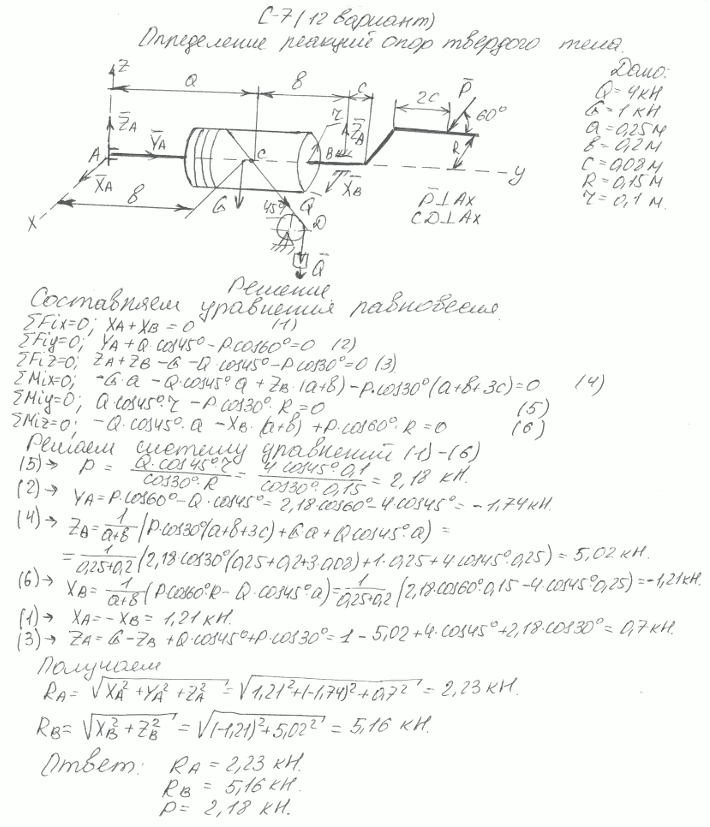 С-7 (12 вариант)
Определение реакций опор твердого тела.
Дано:
Q = 4 кН
G = 1 кН
a = 0,25 м
b = 0,2 м
c = 0,08 м
R = 0,15 м
r = 0,1 м.
Z a b c 2c P̅
60°
Z̅A Y̅A r Z̅B R
A C B y
X̅A X̅B
X b G̅ 45° Q̅ D
P̅⊥Ax
CD⊥Ax
Q̅
Решение
Составляем уравнения равновесия.
ΣFix=0; XA + XB = 0 (1)
ΣFiy=0; YA + Q·cos45° - P·cos60° = 0 (2)
ΣFiz=0; ZA + ZB - G - Q·cos45° - P·cos30° = 0 (3)
ΣMix=0; -G·a - Q·cos45°·a + ZB·(a+b) - P·cos30°(a+b+3c) = 0 (4)
ΣMiy=0; Q·cos45°·r - P·cos30°·R = 0 (5)
ΣMiz=0; -Q·cos45°·a - XB·(a+b) + P·cos60°·R = 0 (6)
Решаем систему уравнений (1)-(6)
(5)→ P = Q·cos45°·r / cos30°·R = 4·cos45°·0,1 / cos30°·0,15 = 2,18 кН.
(2)→ YA = P·cos60° - Q·cos45° = 2,18·cos60° - 4·cos45° = -1,74 кН.
(4)→ ZB = 1/(a+b) (P·cos30°(a+b+3c) + G·a + Q·cos45°·a) =
= 1/(0,25+0,2) (2,18·cos30°(0,25+0,2+3·0,08) + 1·0,25 + 4·cos45°·0,25) = 5,02 кН.
(6)→ XB = 1/(a+b) (P·cos60°·R - Q·cos45°·a) = 1/(0,25+0,2) (2,18·cos60°·0,15 - 4·cos45°·0,25) = -1,21 кН.
(1)→ XA = -XB = 1,21 кН.
(3)→ ZA = G - ZB + Q·cos45° + P·cos30° = 1 - 5,02 + 4·cos45° + 2,18·cos30° = 0,7 кН.
Получаем
RA = √(XA² + YA² + ZA²) = √(1,21² + (-1,74)² + 0,7²) = 2,23 кН.
RB = √(XB² + ZB²) = √((-1,21)² + 5,02²) = 5,16 кН.
Ответ: RA = 2,23 кН.
RB = 5,16 кН.
P = 2,18 кН.